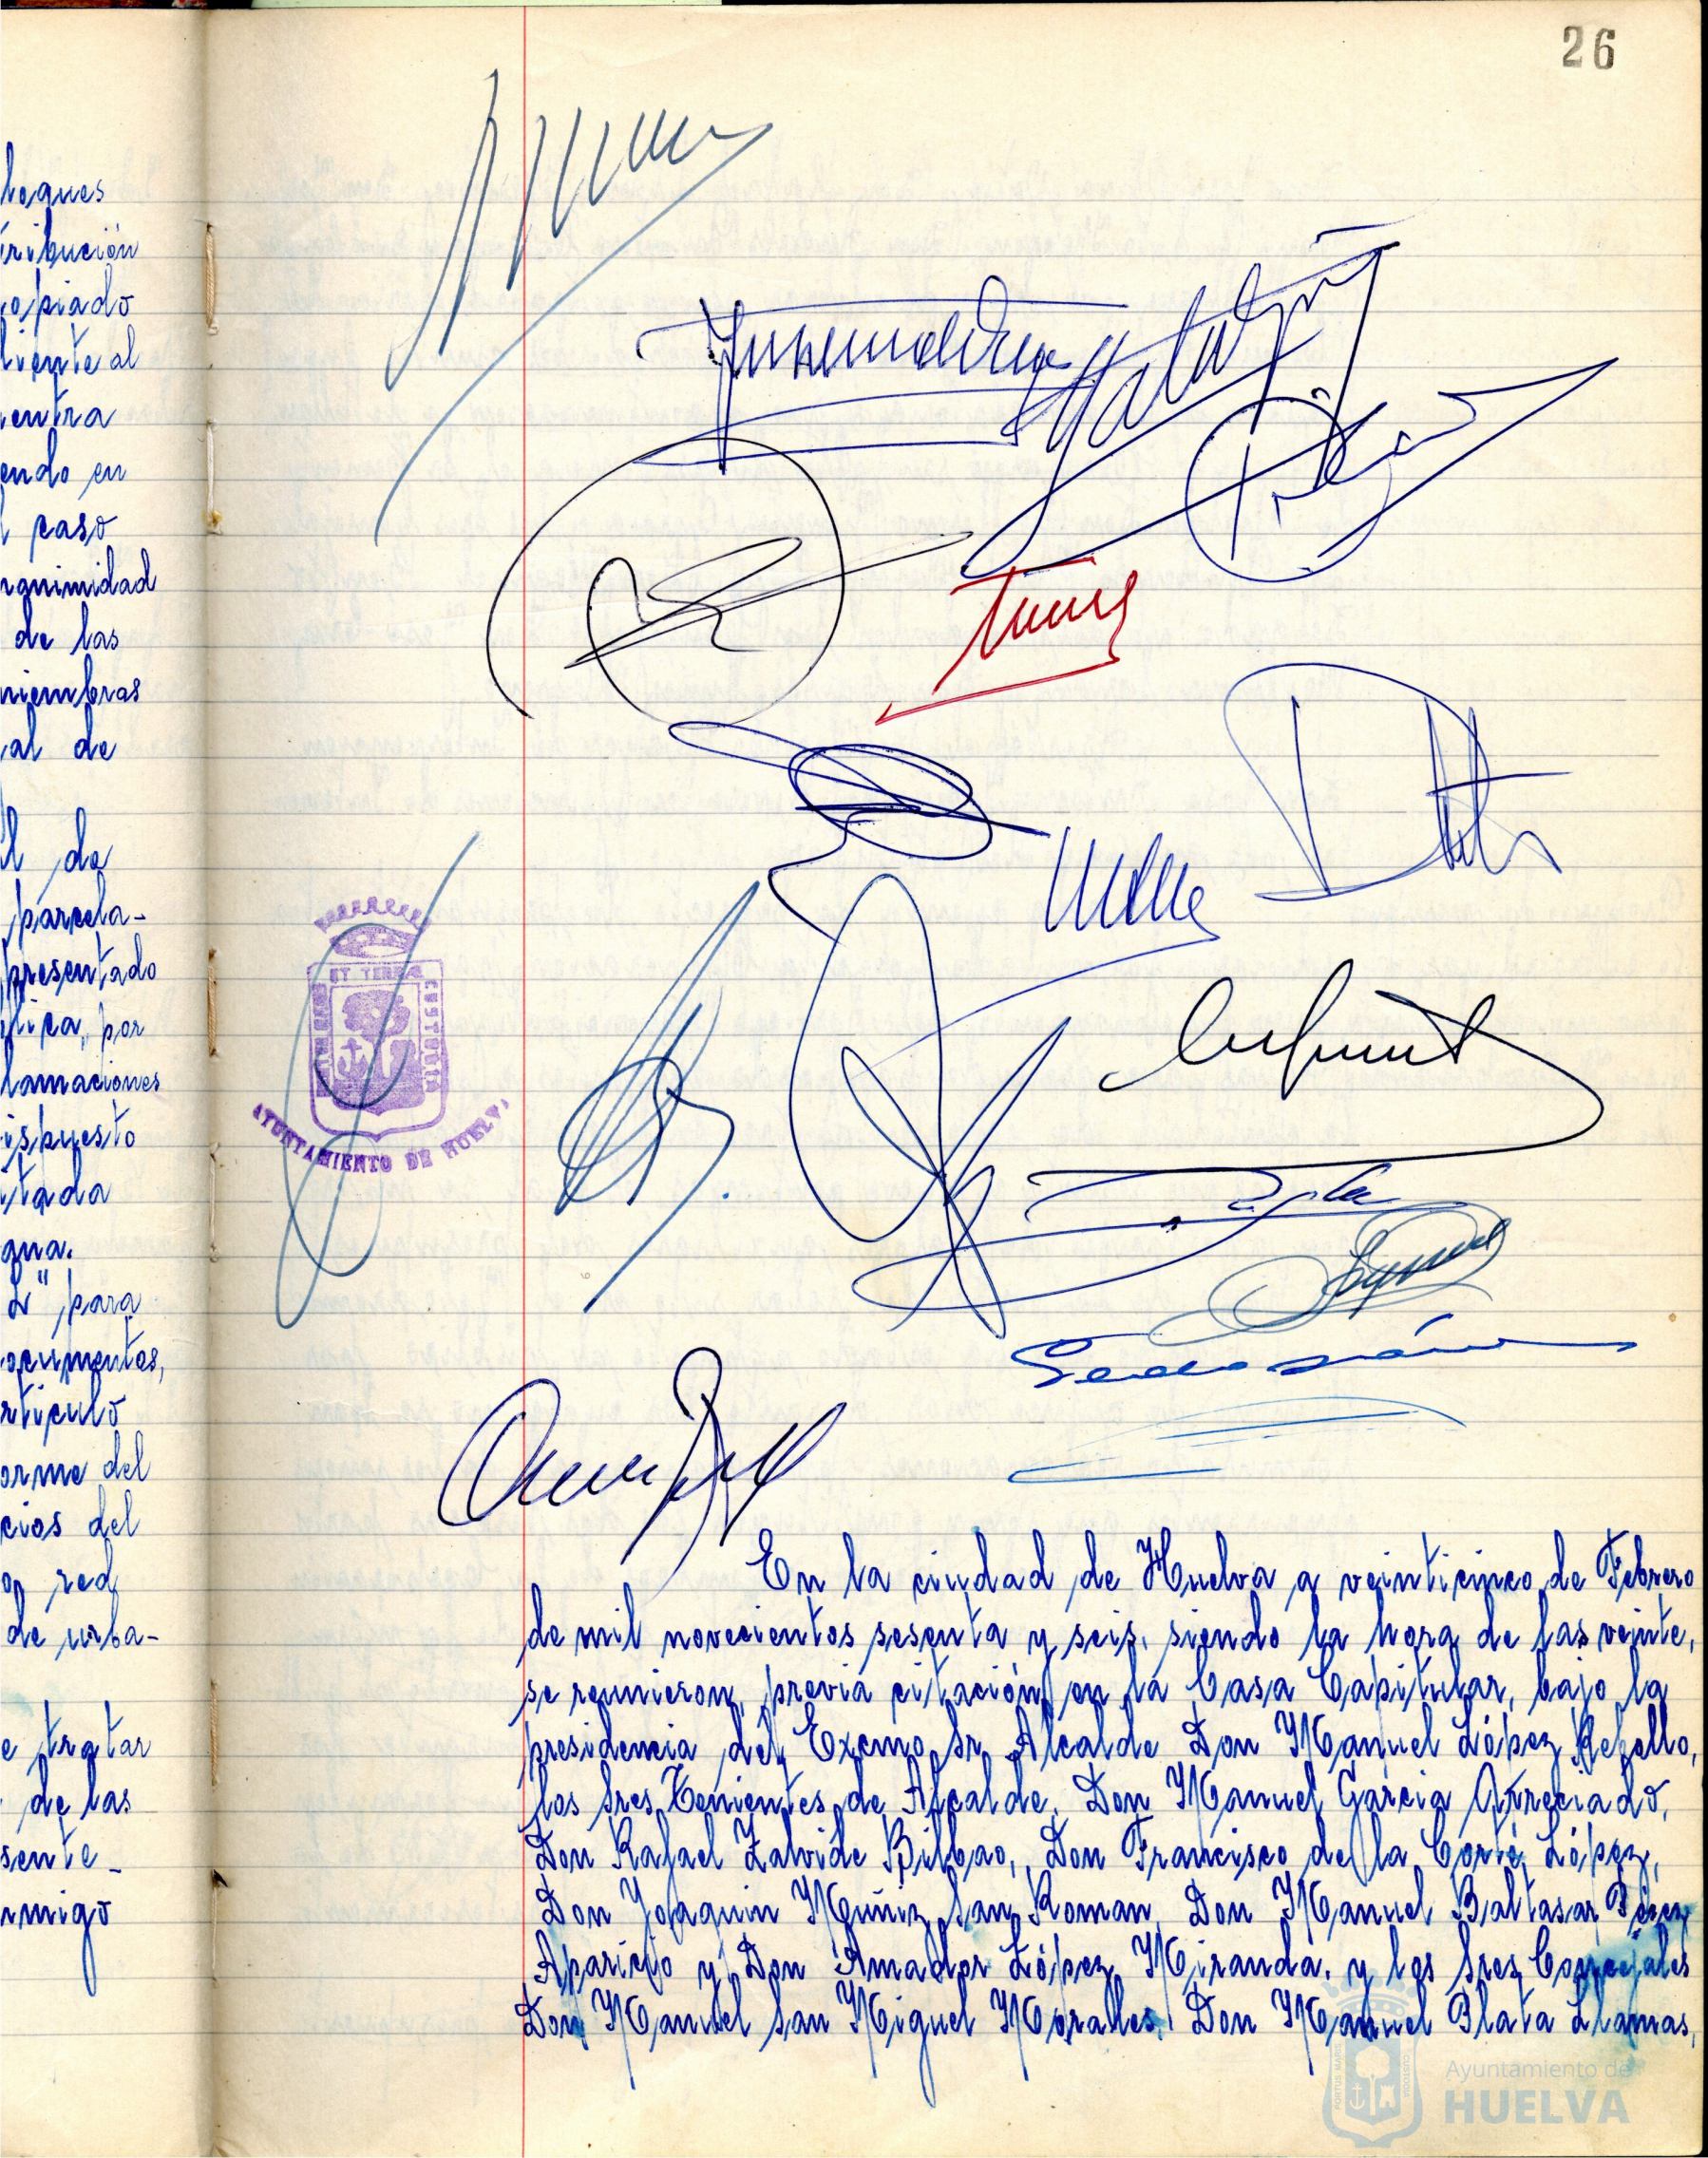 26
loques
ribución
opiado
liente al
entra
endo en
caso
nanimidad
de las
miembros
al de
l de
parcela-
presentado
lica, por
lamaciones
ispuesto
itada
gua.
L" para
ocumentos,
rticulo
orme del
cios del
red
de urba-
e tratar
de las
sente-
nmigo
PORTUS MARIS
ET TERRAE
CUSTODIA
AYUNTAMIENTO DE HUELVA
En la ciudad de Huelva a veinticinco de Febrero
de mil novecientos sesenta y seis, siendo la hora de las veinte,
se reunieron, previa citación, en la Casa Capitular, bajo la
presidencia del Excmo. Sr. Alcalde Don Manuel López Rebollo,
los Sres. Tenientes de Alcalde, Don Manuel García Arreciado,
Don Rafael Zalvide Bilbao, Don Francisco de la Corte López,
Don Joaquin Muñiz San Roman, Don Manuel Baltasar Pérez
Aparicio y Don Amador López Miranda, y los Sres. Concejales
Don Manuel San Miguel Morales, Don Manuel Plata Llamas,
PORTUS MARIS
CUSTODIA
Ayuntamiento de
HUELVA